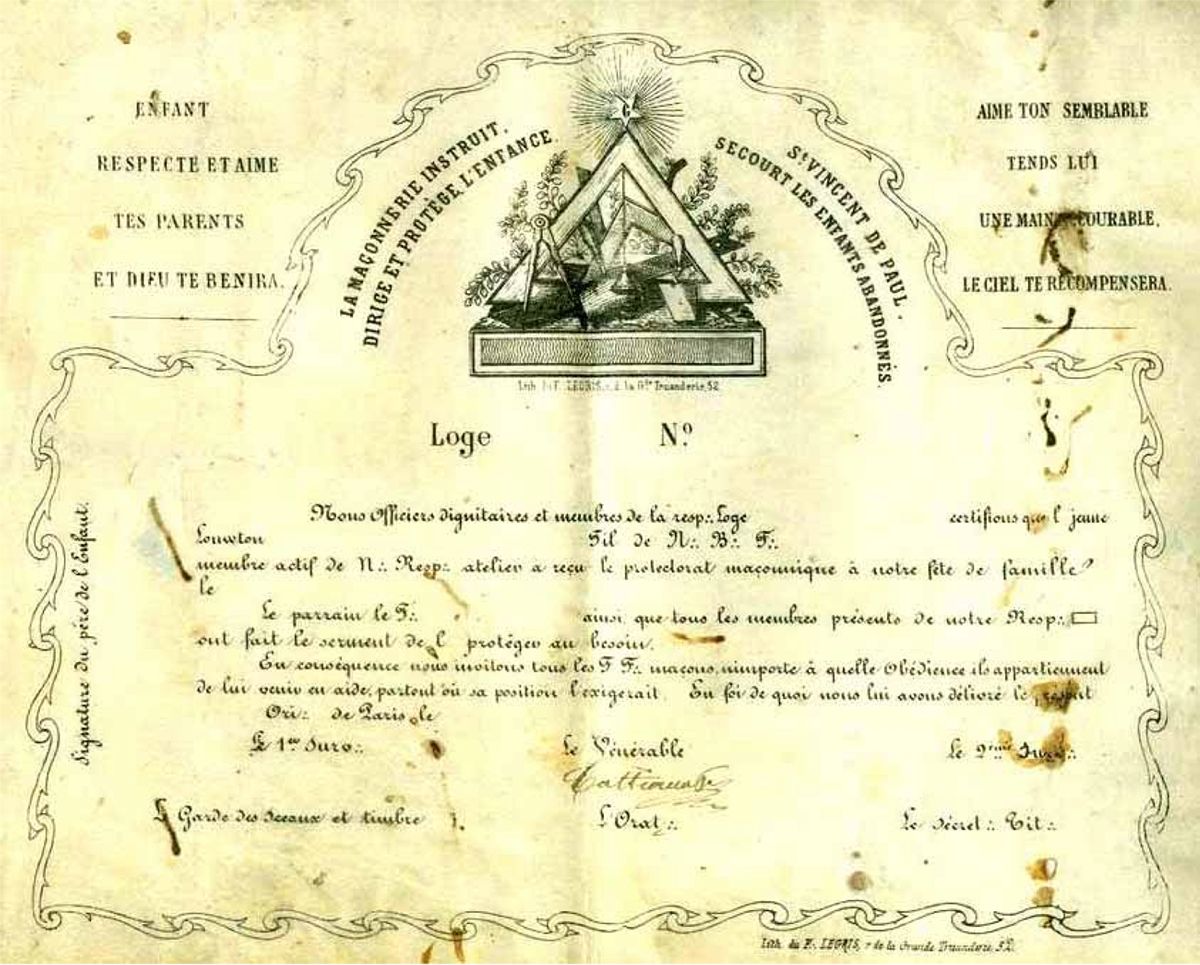 ENFANT
RESPECTE ET AIME
TES PARENTS
ET DIEU TE BENIRA.
LA MAÇONNERIE INSTRUIT,
DIRIGE ET PROTÈGE L'ENFANCE.
G
St VINCENT DE PAUL.
SECOURT LES ENFANTS ABANDONNÉS
AIME TON SEMBLABLE
TENDS LUI
UNE MAIN SECOURABLE,
LE CIEL TE RÉCOMPENSERA.
Lith. du F. LEGRIS, r. d. la Gde Truanderie, 52
Loge Nº
Nous Officiers dignitaires et membres de la resp∴ Loge certifions que l jeune
Louwton Fil de N∴ B∴ F∴
membre actif de N∴ Resp∴ atelier a reçu le protectorat maçonnique à notre fête de famille
le
Le parrain le F∴ ainsi que tous les membres présents de notre Resp∴
ont fait le serment de l protéger au besoin.
En conséquence nous invitons tous les F F∴ maçons, n'importe à quelle Obédience ils appartiennent
de lui venir en aide, partout où sa position l'exigerait. En foi de quoi nous lui avons délivré le
Ori∴ de Paris, le
Le 1er Surv∴ Le Vénérable Le 2ème Surv∴
Le Garde des Sceaux et timbre L'Orat∴ Le Secrét∴ Tit∴
Signature du père de l'Enfant.
Lith. du F∴ LEGRIS, r de la Grande Truanderie, 52.